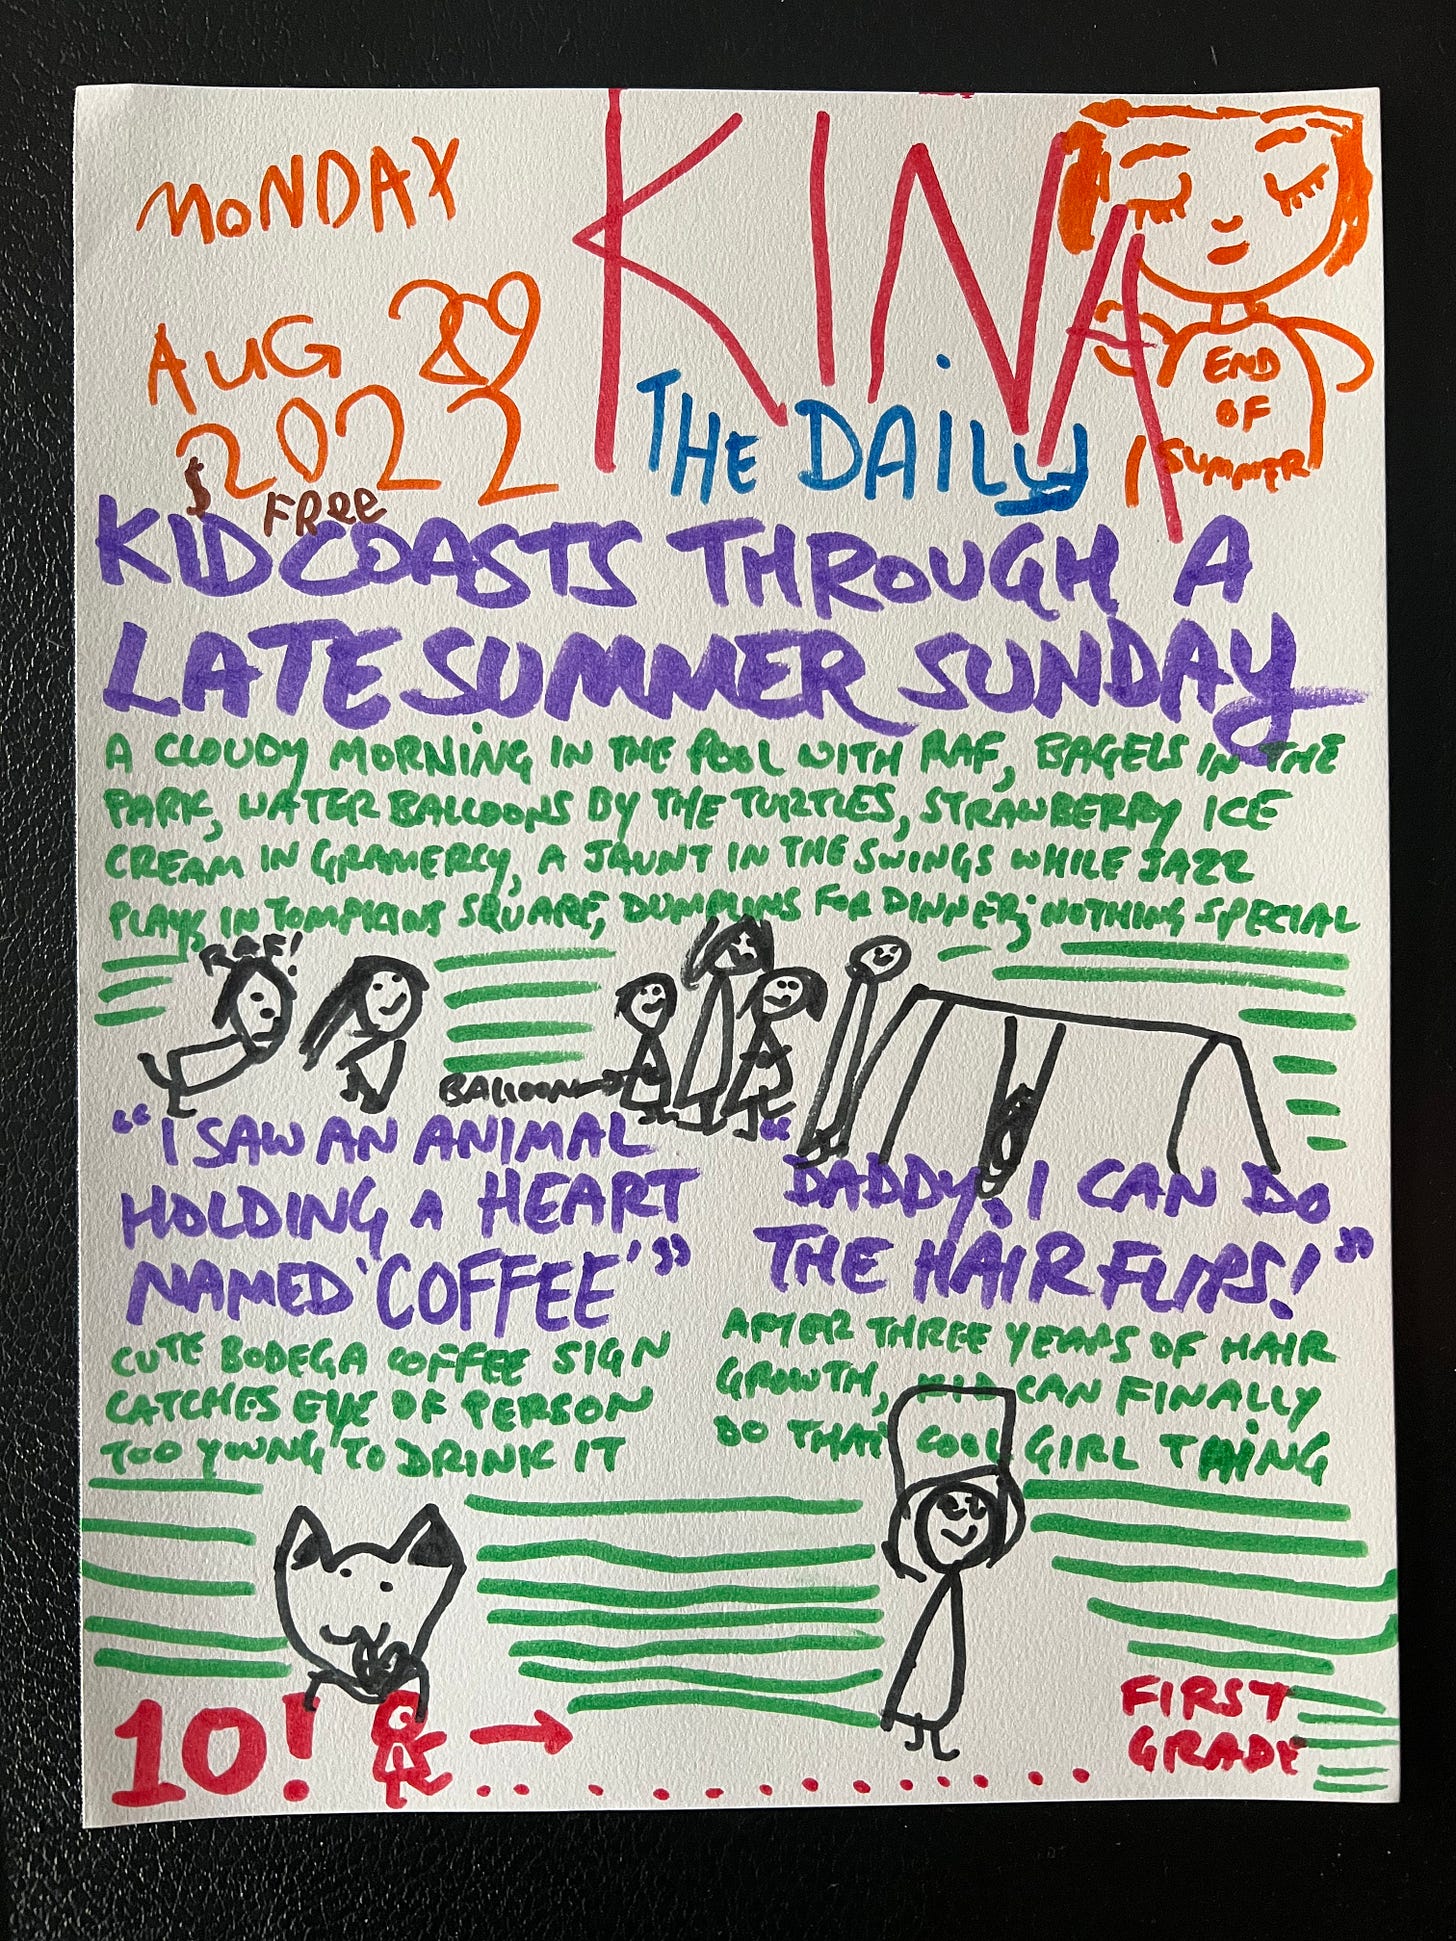 MONDAY
AUG 29
2022
$ FREE
KINA
THE DAILY
END
OF
SUMMER
KID COASTS THROUGH A
LATE SUMMER SUNDAY
A CLOUDY MORNING IN THE POOL WITH RAF, BAGELS IN THE
PARK, WATER BALLOONS BY THE TURTLES, STRAWBERRY ICE
CREAM IN GRAMERCY, A JAUNT IN THE SWINGS WHILE JAZZ
PLAYS IN TOMPKINS SQUARE, DUMPLINS FOR DINNER; NOTHING SPECIAL
RAF!
BALLOON
"I SAW AN ANIMAL
HOLDING A HEART
NAMED 'COFFEE'"
CUTE BODEGA COFFEE SIGN
CATCHES EYE OF PERSON
TOO YOUNG TO DRINK IT
"DADDY! I CAN DO
THE HAIR FLIPS!"
AFTER THREE YEARS OF HAIR
GROWTH, KID CAN FINALLY
DO THAT COOL GIRL THING
10!
FIRST
GRADE